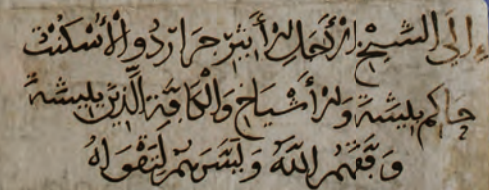 إلى الشيخ الأجل جراردو الأسكنت
حاكم بيشة والأشياخ والكافة الذين ببيشة
وفقهم الله ويسرهم لتقواه